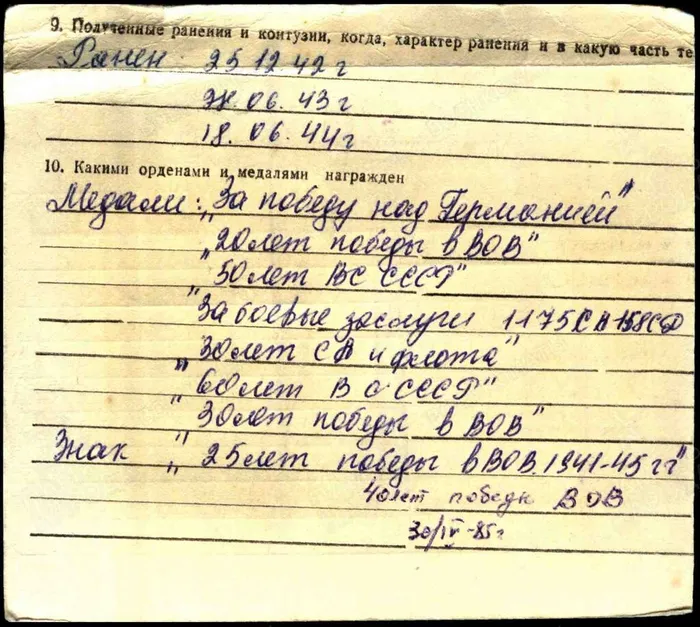 9. Полученные ранения и контузии, когда, характер ранения и в какую часть те
Ранен 25.12.42 г
06.43 г
18.06.44 г
10. Какими орденами и медалями награжден
Медали: "За победу над Германией"
"20 лет победы в ВОВ"
"50 лет ВС СССР"
"За боевые заслуги 1175 СП 158СД
"30 лет СА и флота"
"60 лет ВС СССР"
"30 лет победы в ВОВ"
Знак "25 лет победы в ВОВ. 1941-45 гг"
40 лет победы ВОВ
30/IV-85 г